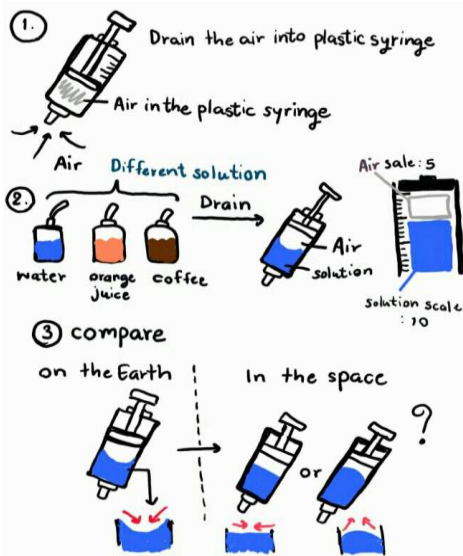 1.
Drain the air into plastic syringe
Air in the plastic syringe
Air
Different solution
2.
Drain
water
orange juice
coffee
Air
solution
Air sale: 5
solution scale
: 10
3 compare
on the Earth
In the space
or
?